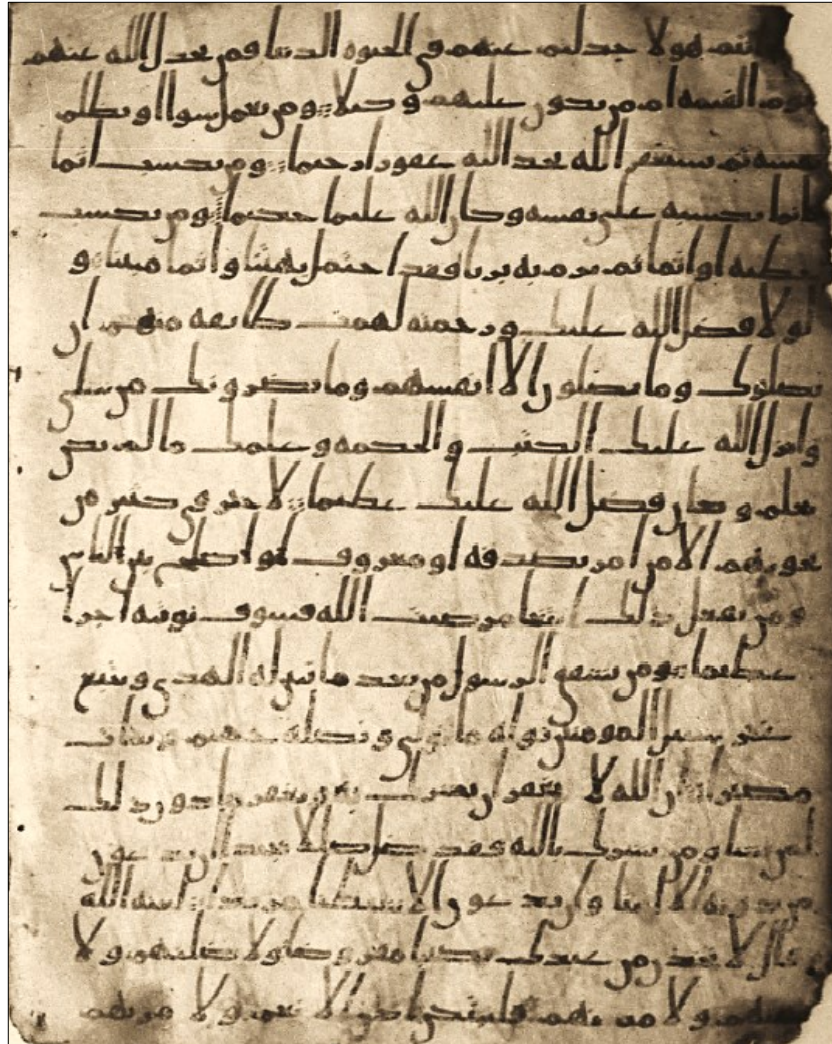 هانتم هولا جدلتم عنهم في الحيوه الدنيا فمن يجدل الله عنهم
يوم القيمه ام من يكون عليهم وكيلا ومن يعمل سوا او يظلم
نفسه ثم يستغفر الله يجد الله غفورا رحيما ومن يكسب اثما
فانما يكسبه على نفسه وكان الله عليما حكيما ومن يكسب
خطيه او اثما ثم يرم به بريا فقد احتمل بهتنا واثما مبينا و
لولا فضل الله عليك ورحمته لهمت طايفه منهم ان
يضلوك وما يضلون الا انفسهم وما يضرونك من شي
وانزل الله عليك الكتب والحكمه وعلمك ما لم تكن
تعلم وكان فضل الله عليك عظيما لا خير في كثير من
نجويهم الا من امر بصدقه او معروف او اصلح بين الناس
ومن يفعل ذلك ابتغا مرضت الله فسوف نوتيه اجرا
عظيما ومن يشقق الرسول من بعد ما تبين له الهدى ويتبع
غير سبيل المومنين نوله ما تولى ونصله جهنم وسات
مصيرا ان الله لا يغفر ان يشرك به ويغفر ما دون ذلك
لمن يشا ومن يشرك بالله فقد ضل ضللا بعيدا ان يدعون
من دونه الا انثا وان يدعون الا شيطنا مريدا لعنه الله
وقال لاتخذن من عبدك نصيبا مفروضا ولاضلنهم ولا
منينهم ولامرنهم فليبتكن اذان الانعم ولامرنهم